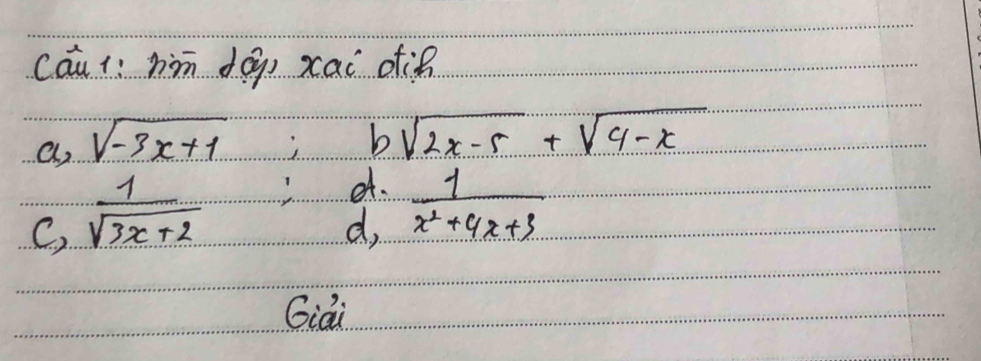 Câu 1: Tìm tập xác định
a, √-3x+1 ; b √2x-5 + √4-x
c, 1/√3x+2 ; d. 1/x²+4x+3
d,
Giải